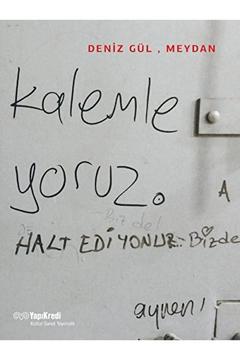 DENİZ GÜL , MEYDAN
kalemle
yoruz.
A
Biz de!
HALT EDİYONUZ. Bizde
aynen!
YapıKredi
Kültür Sanat Yayıncılık